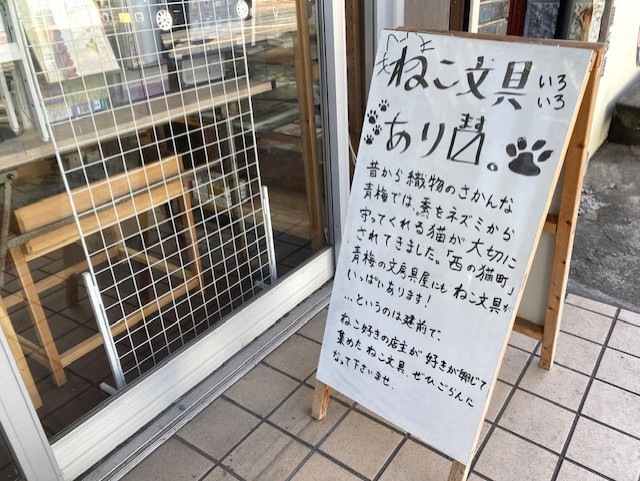 ねこ文具いろいろ
あり〼。
昔から織物のさかんな
青梅では、蚕をネズミから
守ってくれる猫が大切に
されてきました。「西の猫町」
青梅の文房具屋にも ねこ文具が
いっぱいあります!
…というのは建前で、
ねこ好きの店主が 好きが興じて
集めた ねこ文具、ぜひごらんに
なって下さいませ.